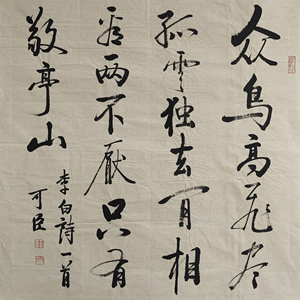 众鳥高飛尽
孤雲独去闲相
看两不厭只有
敬亭山
李白詩一首
可臣